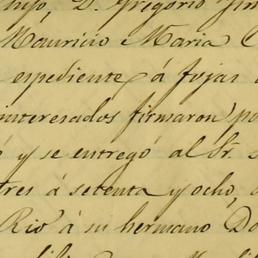 hijo, D. Gregorio
Mauricio Maria
espediente á fojas
interesados firmaron, po
ó y se entregó al Sr. s
tres á setenta y ocho,
Rio á su hermano Do